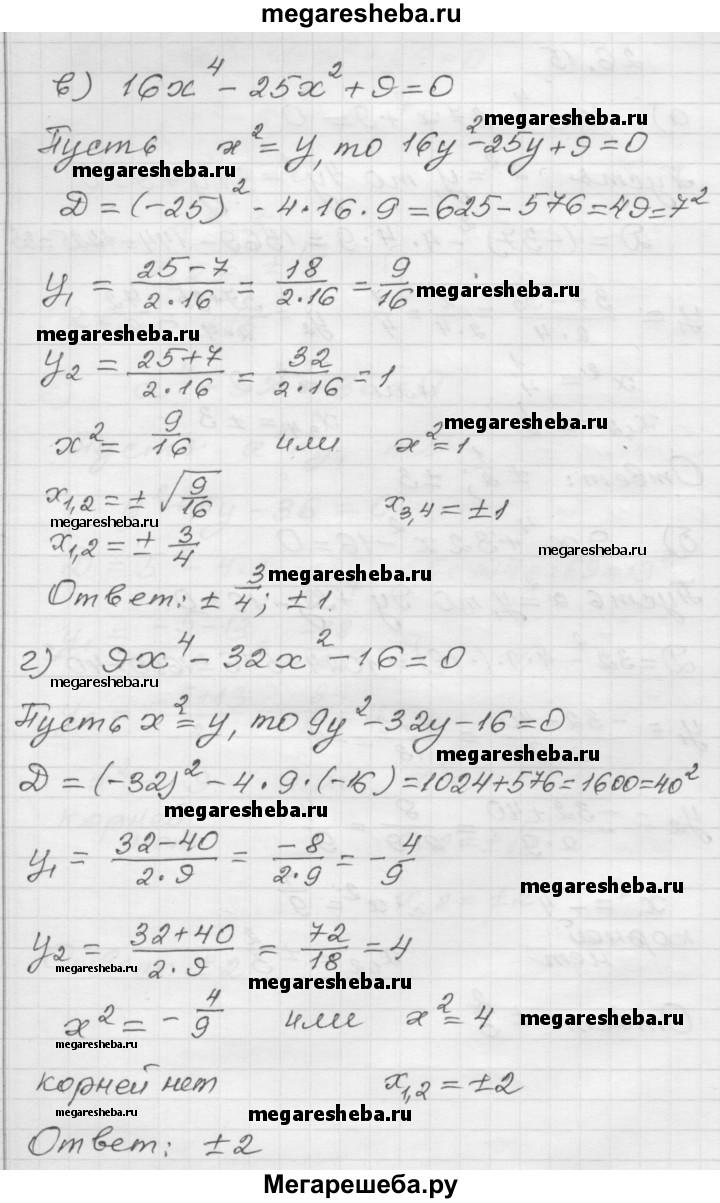 megaresheba.ru
в) 16x⁴ - 25x² + 9 = 0
megaresheba.ru
Пусть x² = y, то 16y² - 25y + 9 = 0
megaresheba.ru
Д = (-25)² - 4·16·9 = 625 - 576 = 49 = 7²
y₁ = (25-7)/(2·16) = 18/(2·16) = 9/16
megaresheba.ru
megaresheba.ru
y₂ = (25+7)/(2·16) = 32/(2·16) = 1
megaresheba.ru
x² = 9/16 или x² = 1
x₁,₂ = ± √(9/16) x₃,₄ = ±1
megaresheba.ru
megaresheba.ru
x₁,₂ = ± 3/4
megaresheba.ru
Ответ: ± 3/4; ± 1.
г) 9x⁴ - 32x² - 16 = 0
megaresheba.ru
Пусть x² = y, то 9y² - 32y - 16 = 0
megaresheba.ru
Д = (-32)² - 4·9·(-16) = 1024 + 576 = 1600 = 40²
megaresheba.ru
y₁ = (32-40)/(2·9) = -8/(2·9) = - 4/9
megaresheba.ru
y₂ = (32+40)/(2·9) = 72/18 = 4
megaresheba.ru
megaresheba.ru
x² = - 4/9 или x² = 4
megaresheba.ru
megaresheba.ru
корней нет x₁,₂ = ±2
megaresheba.ru
megaresheba.ru
Ответ: ±2
Мегарешеба.ру